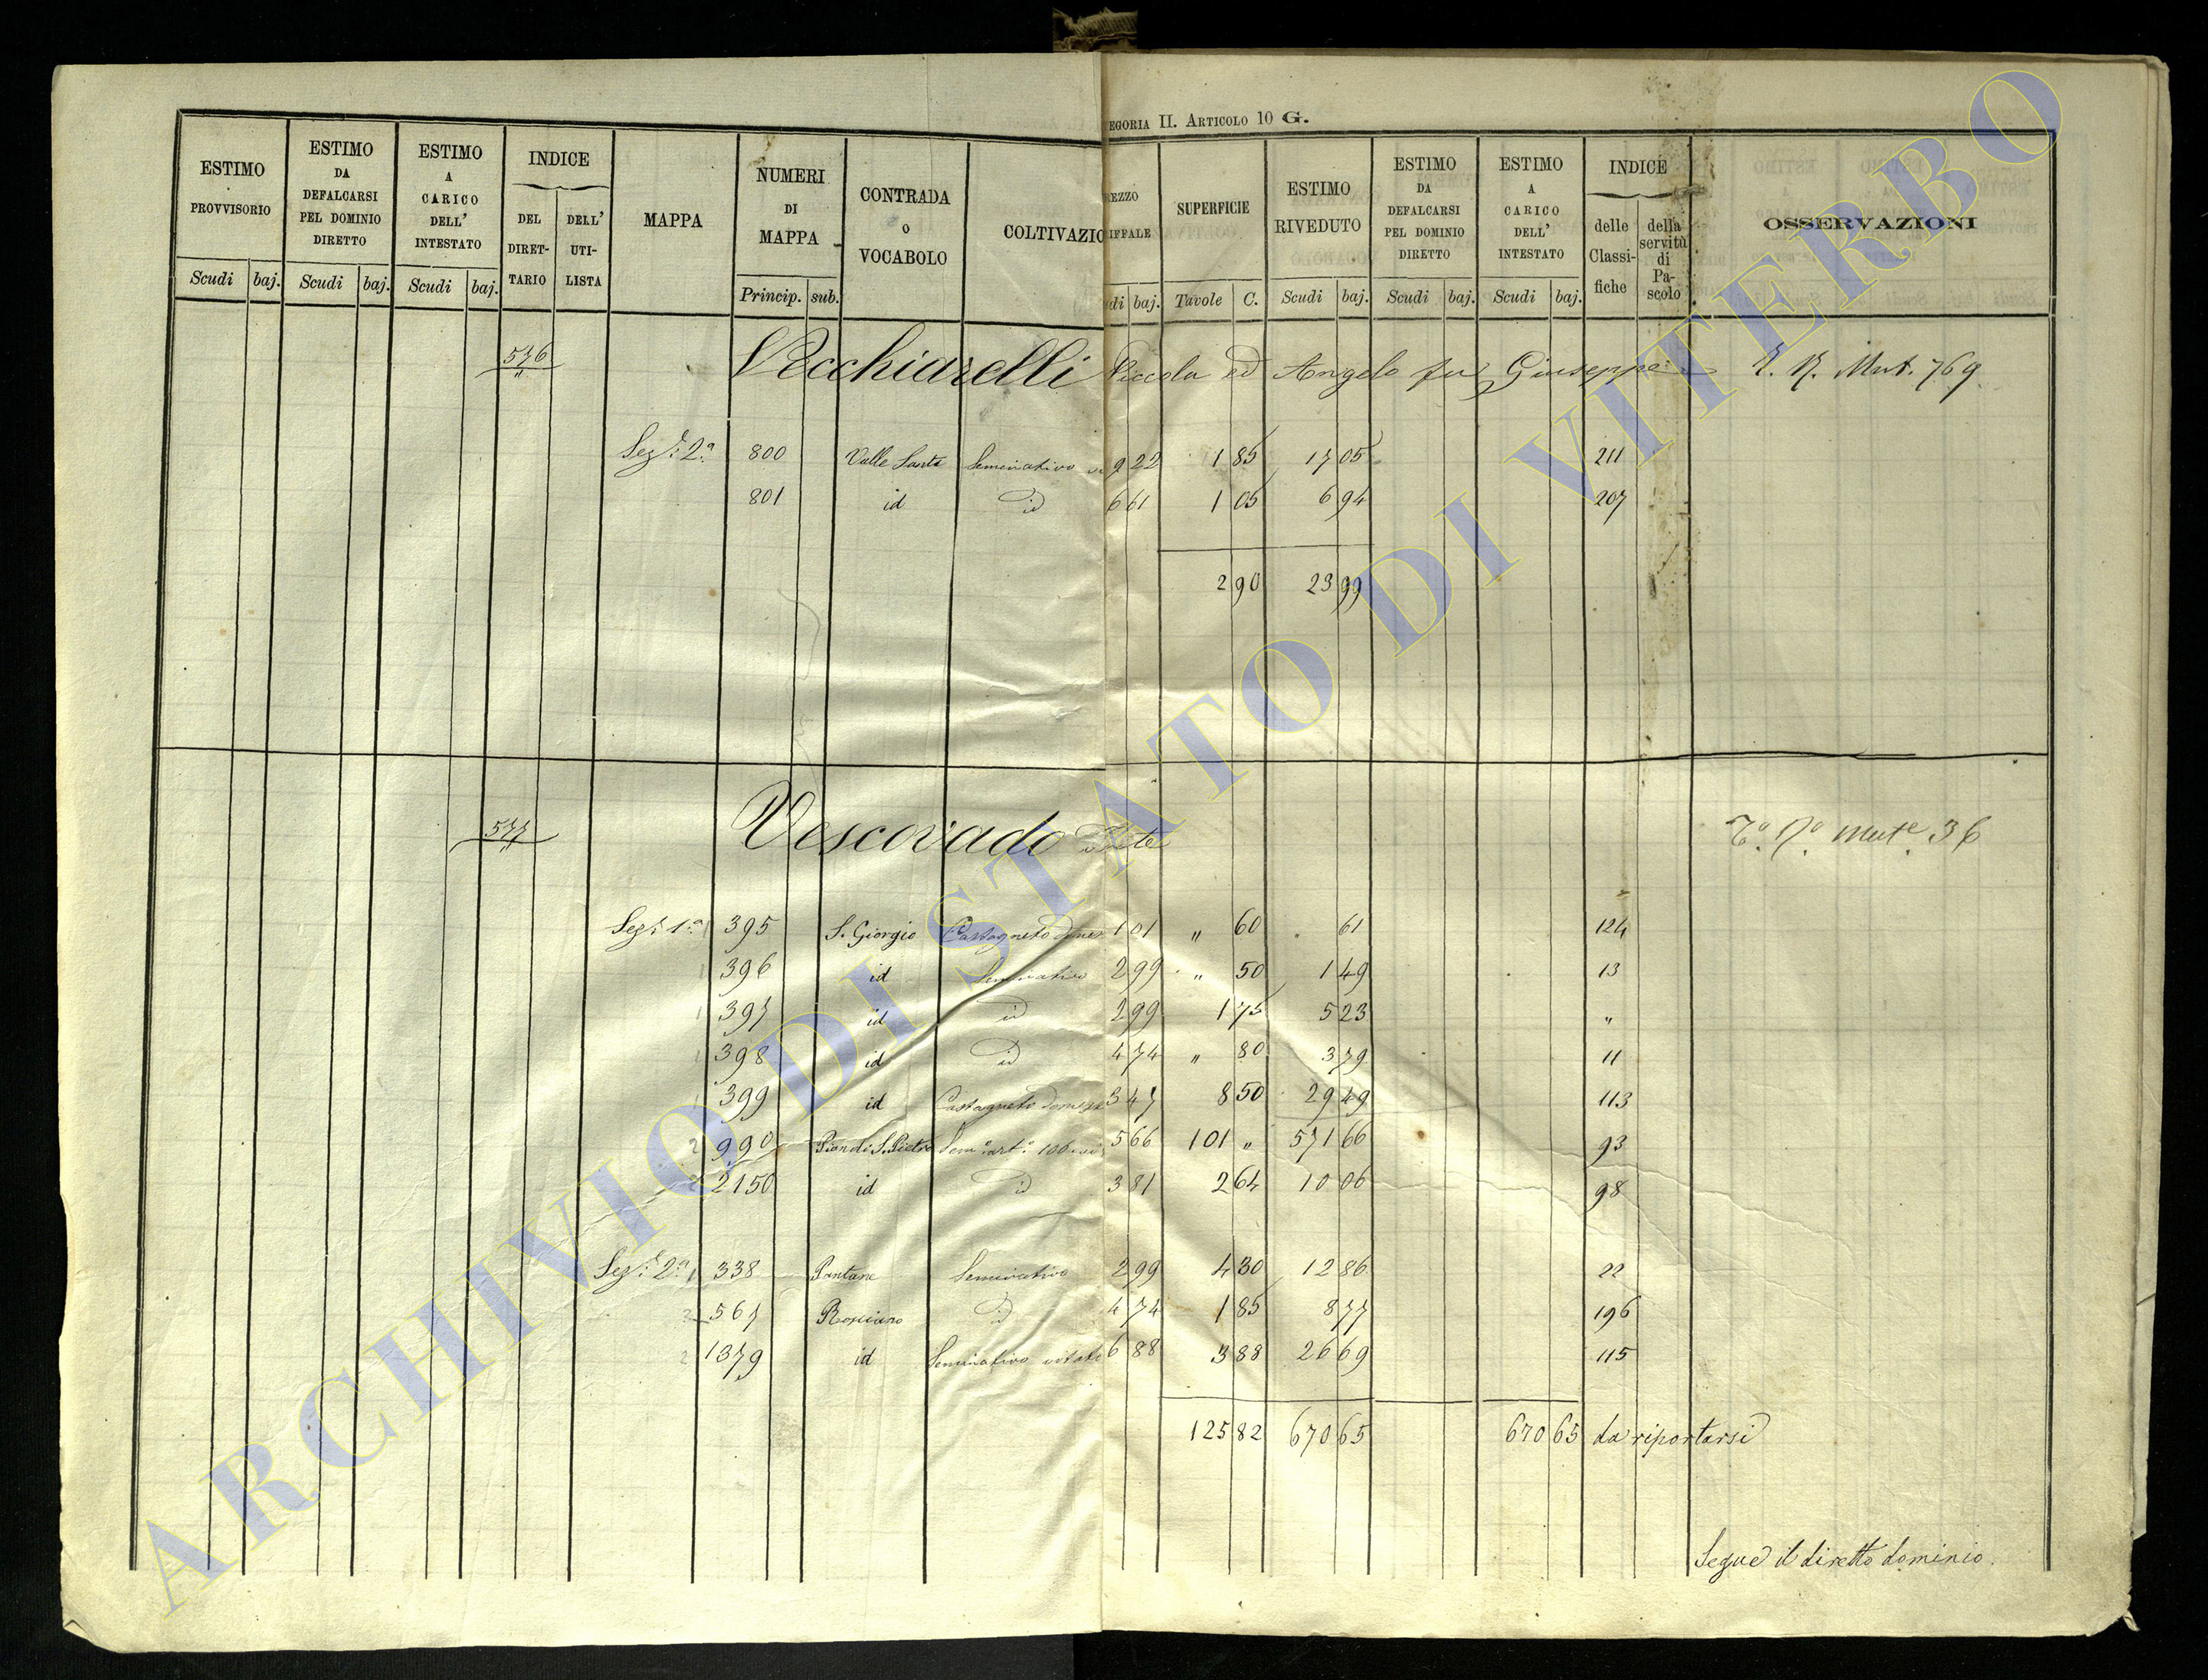 EGORIA II. ARTICOLO 10 G.
ESTIMO PROVVISORIO Scudi baj.
ESTIMO DA DEFALCARSI PEL DOMINIO DIRETTO Scudi baj.
ESTIMO A CARICO DELL' INTESTATO Scudi baj.
INDICE DEL DIRET-TARIO DELL' UTI-LISTA
MAPPA
NUMERI DI MAPPA Princip. sub.
CONTRADA O VOCABOLO
COLTIVAZIO
REZZO IFFALE di baj.
SUPERFICIE Tavole C.
ESTIMO RIVEDUTO Scudi baj.
ESTIMO DA DEFALCARSI PEL DOMINIO DIRETTO Scudi baj.
ESTIMO A CARICO DELL' INTESTATO Scudi baj.
INDICE delle Classi-fiche della servitù di Pa-scolo
OSSERVAZIONI
576 Vecchiarelli Piccola ed Angelo fu Giuseppe Mut. 769
Sez.e 2a 800 Valle Santa Seminativo 9 22 1 85 17 05 211
801 id id 6 61 1 05 6 94 207
2 90 23 99
577 Vescovado Mut.e 36
Sez.e 1a 395 S. Giorgio Castagneto 1 01 " 60 61 124
396 id Seminativo 2 99 " 50 1 49 13
397 id id 2 99 1 75 5 23 "
398 id id 4 74 " 80 3 79 11
399 id Castagneto 3 47 8 50 29 49 113
2 990 Pian di S. Pietro 5 66 101 " 571 66 93
2 2150 id id 3 81 2 64 10 06 98
Sez.e 2a 338 Pantane Seminativo 2 99 4 30 12 86 22
2 567 Rosciano id 4 74 1 85 8 77 196
2 1379 id Seminativo vitato 6 88 3 88 26 69 115
125 82 670 65 670 65 da riportarsi
Segue il diretto dominio.
ARCHIVIO DI STATO DI VITERBO